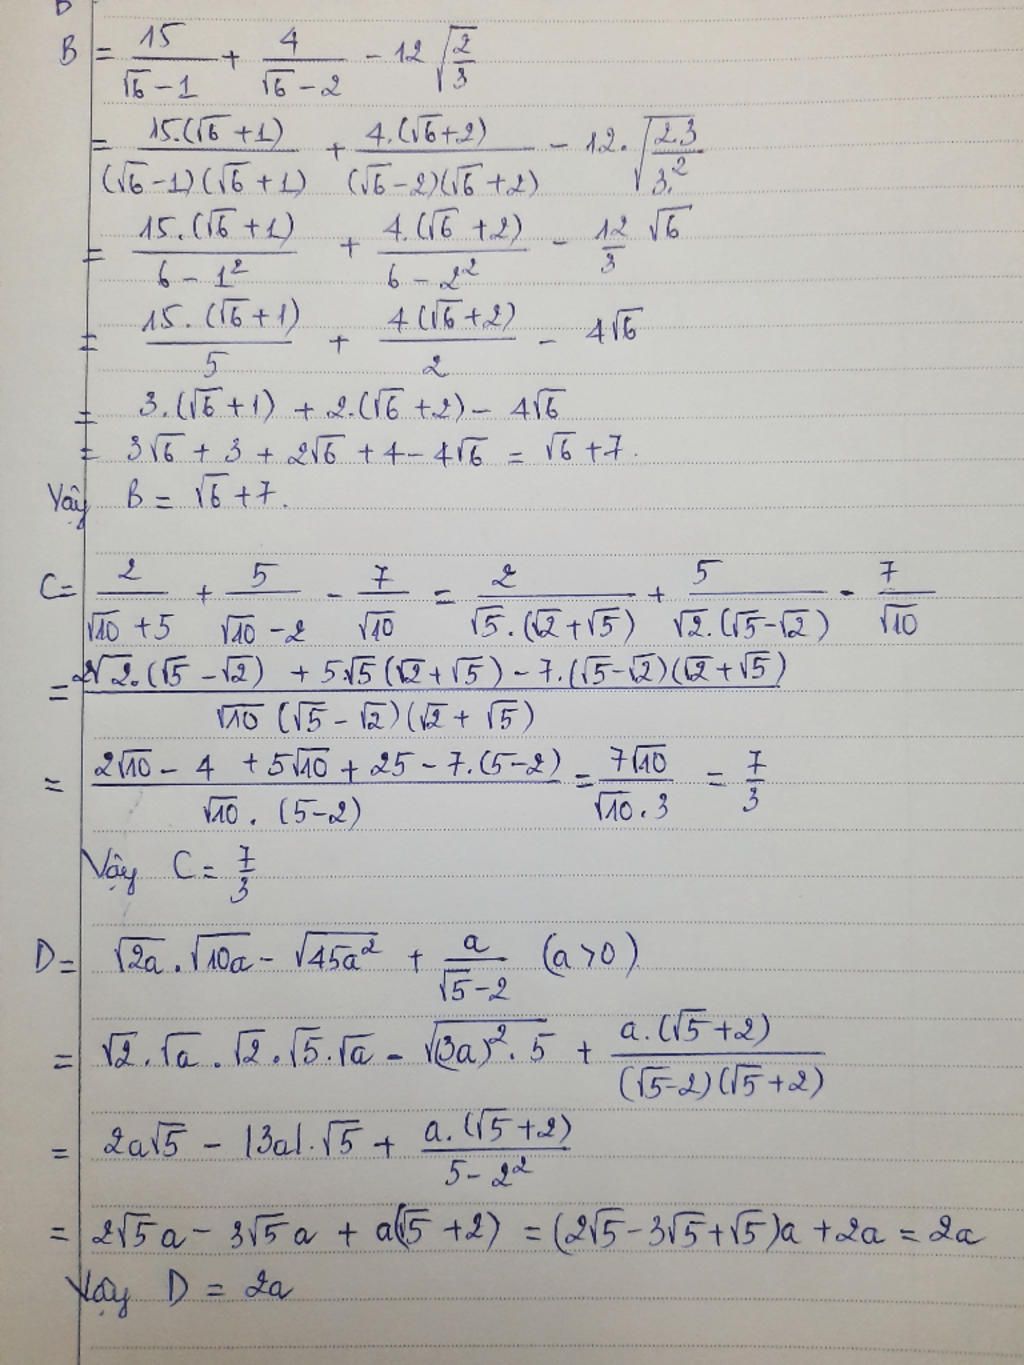 B = 15/(√6 - 1) + 4/(√6 - 2) - 12 √(2/3)
= 15.(√6 + 1)/((√6 - 1)(√6 + 1)) + 4.(√6 + 2)/((√6 - 2)(√6 + 2)) - 12. √(2.3/3.²)
= 15.(√6 + 1)/(6 - 1²) + 4.(√6 + 2)/(6 - 2²) - 12/3 √6
= 15.(√6 + 1)/5 + 4(√6 + 2)/2 - 4√6
= 3.(√6 + 1) + 2.(√6 + 2) - 4√6
= 3√6 + 3 + 2√6 + 4 - 4√6 = √6 + 7.
Vậy B = √6 + 7.
C = 2/(√10 + 5) + 5/(√10 - 2) - 7/√10 = 2/(√5.(√2 + √5)) + 5/(√2.(√5 - √2)) - 7/√10
= (2√2.(√5 - √2) + 5√5(√2 + √5) - 7.(√5 - √2)(√2 + √5))/(√10 (√5 - √2)(√2 + √5))
= (2√10 - 4 + 5√10 + 25 - 7.(5 - 2))/(√10. (5 - 2)) = 7√10/(√10.3) = 7/3
Vậy C = 7/3
D = √2a.√10a - √45a² + a/(√5 - 2) (a > 0)
= √2.√a.√2.√5.√a - √((3a)².5) + a.(√5 + 2)/((√5 - 2)(√5 + 2))
= 2a√5 - |3a|.√5 + a.(√5 + 2)/(5 - 2²)
= 2√5a - 3√5a + a(√5 + 2) = (2√5 - 3√5 + √5)a + 2a = 2a
Vậy D = 2a